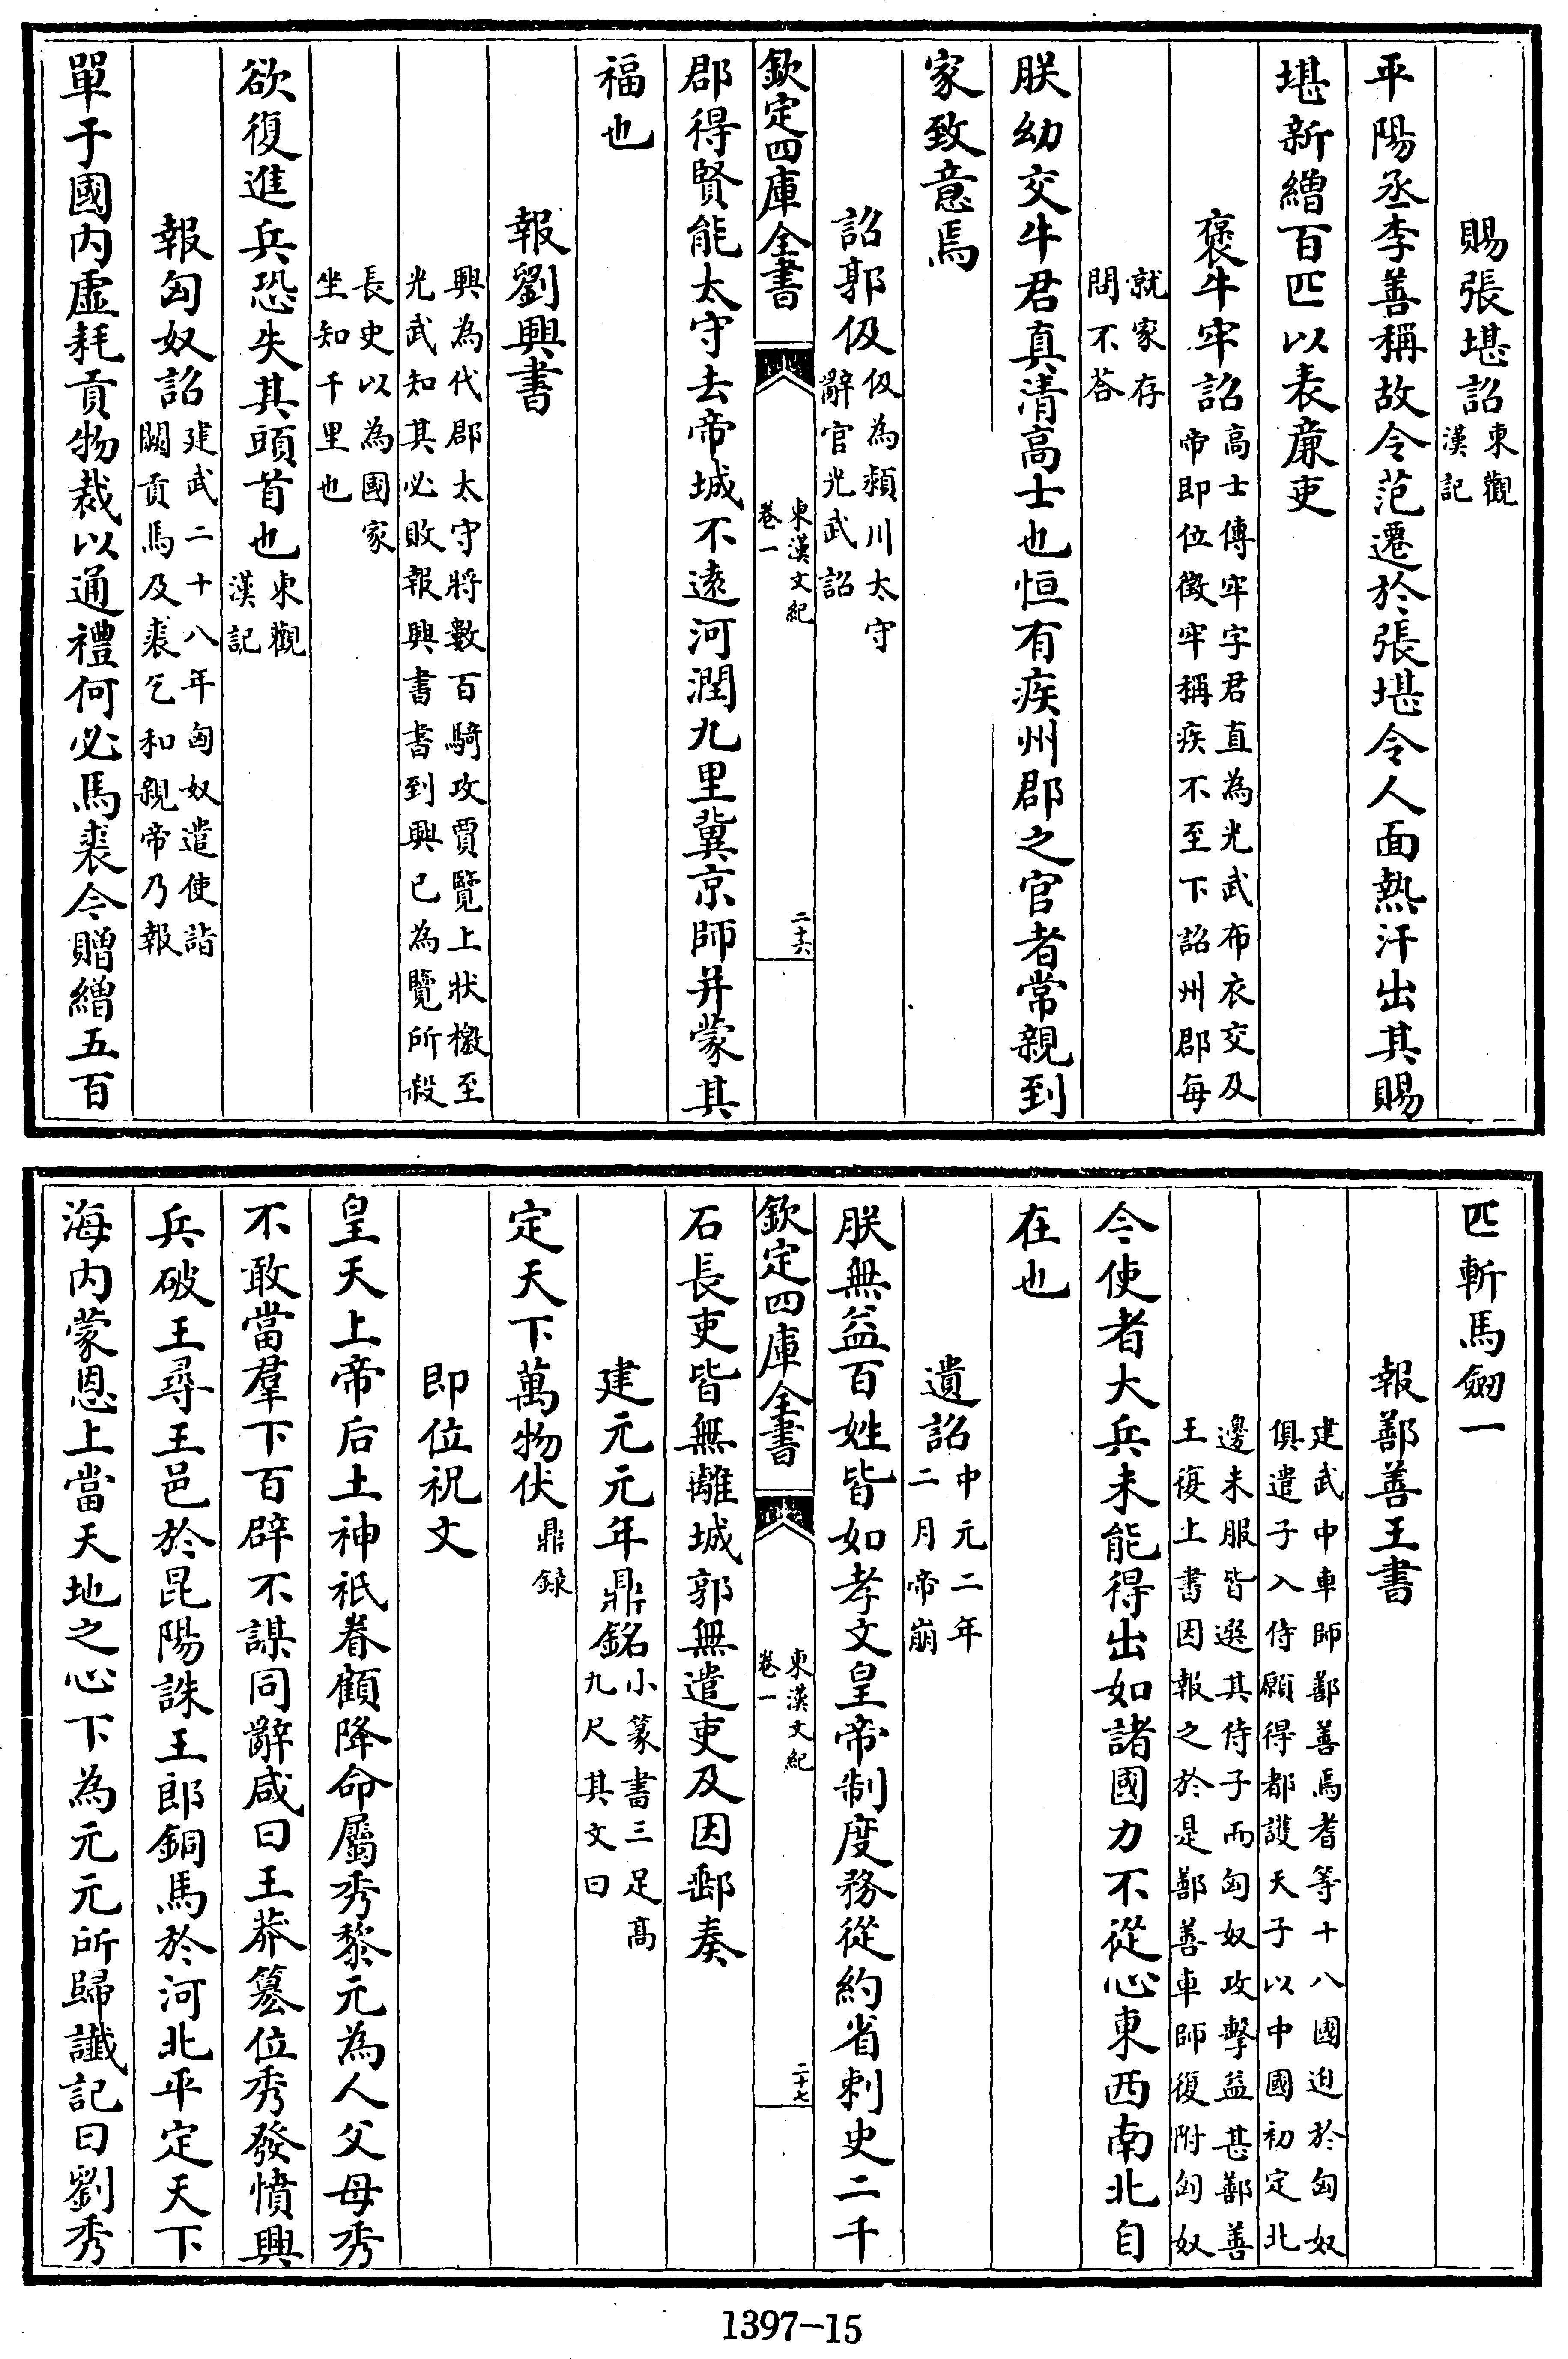 賜張堪詔東觀漢記
平陽丞李善稱故令范遷於張堪令人面熱汗出其賜
堪新繒百匹以表廉吏
褒牛牢詔高士傳牢字君直為光武布衣交及帝即位徵牢稱疾不至下詔州郡每
就家存問不荅
朕幼交牛君真清高士也恒有疾州郡之官者常親到
家致意焉
詔郭伋伋為潁川太守辭官光武詔
欽定四庫全書 東漢文紀卷一 二十六
郡得賢能太守去帝城不遠河潤九里冀京師并蒙其
福也
報劉興書
興為代郡太守將數百騎攻賈覽上狀檄至光武知其必敗報興書書到興已為覽所殺
長史以為國家坐知千里也
欲復進兵恐失其頭首也東觀漢記
報匈奴詔建武二十八年匈奴遣使詣闕貢馬及裘乞和親帝乃報
單于國內虛耗貢物裁以通禮何必馬裘今贈繒五百
匹斬馬劒一
報鄯善王書
建武中車師鄯善焉耆等十八國迫於匈奴俱遣子入侍願得都護天子以中國初定北
邊未服皆選其侍子而匈奴攻擊益甚鄯善王復上書因報之於是鄯善車師復附匈奴
今使者大兵未能得出如諸國力不從心東西南北自
在也
遺詔中元二年二月帝崩
朕無益百姓皆如孝文皇帝制度務從約省刺史二千
欽定四庫全書 東漢文紀卷一 二十七
石長吏皆無離城郭無遣吏及因郵奏
建元元年鼎銘小篆書三足高九尺其文曰
定天下萬物伏鼎録
即位祝文
皇天上帝后土神祇眷顧降命屬秀黎元為人父母秀
不敢當羣下百辟不謀同辭咸曰王莽簒位秀發憤興
兵破王尋王邑於昆陽誅王郎銅馬於河北平定天下
海內蒙恩上當天地之心下為元元所歸讖記曰劉秀
1397-15